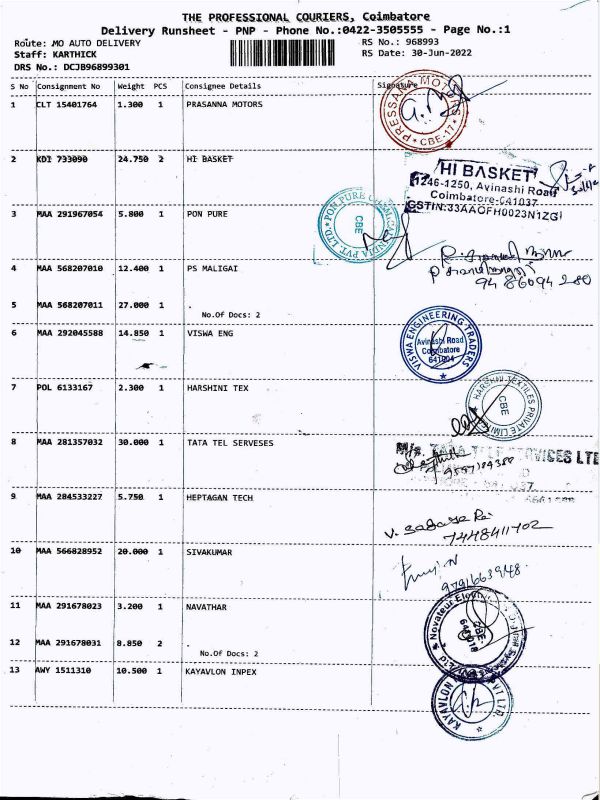 THE PROFESSIONAL COURIERS, Coimbatore
Delivery Runsheet - PNP - Phone No.:0422-3505555 - Page No.:1
Route: MO AUTO DELIVERY RS No.: 968993
Staff: KARTHICK RS Date: 30-Jun-2022
DRS No.: DCJB96899301
S No Consignment No Weight PCS Consignee Details Signature
1 CLT 15401764 1.300 1 PRASANNA MOTORS
PRESSANA MOTORS * CBE-17 *
2 KDI 733090 24.750 2 HI BASKET
HI BASKET
1246-1250, Avinashi Road
Coimbatore-641037
GSTIN:33AAOFH0023N1ZGI
3 MAA 291967054 5.800 1 PON PURE
PON PURE CHEMICAL INDIA PVT. LTD. * CBE
4 MAA 568207010 12.400 1 PS MALIGAI
94 86094 280
5 MAA 568207011 27.000 1
No.Of Docs: 2
6 MAA 292045588 14.850 1 VISWA ENG
VISWA ENGINEERING TRADERS
Avinashi Road
Coimbatore
7 POL 6133167 2.300 1 HARSHINI TEX
HARSHINI TEXTILES PRIVATE LIMI
CBE
8 MAA 281357032 30.000 1 TATA TEL SERVESES
M/s. TATA TELE SERVICES LTD
9 MAA 284533227 5.750 1 HEPTAGAN TECH
7448411702
10 MAA 566828952 20.000 1 SIVAKUMAR
9791663948
11 MAA 291678023 3.200 1 NAVATHAR
Novateur
CBE
12 MAA 291678031 8.850 2
No.Of Docs: 2
13 AWY 1511310 10.500 1 KAYAVLON INPEX
KAYAVLON PVT LTD.